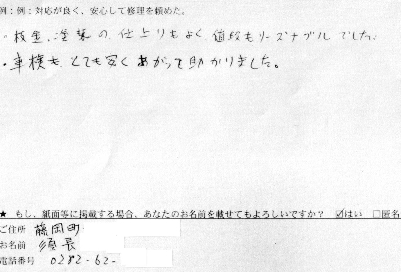 例：例：対応が良く、安心して修理を頼めた。
・板金、塗装の仕上りもよく値段もリーズナブルでした。
・車検も、とても安くあがって助かりました。
★ もし、紙面等に掲載する場合、あなたのお名前を載せてもよろしいですか？ ☑はい □匿名
ご住所 藤岡町
お名前
電話番号 0282-62-